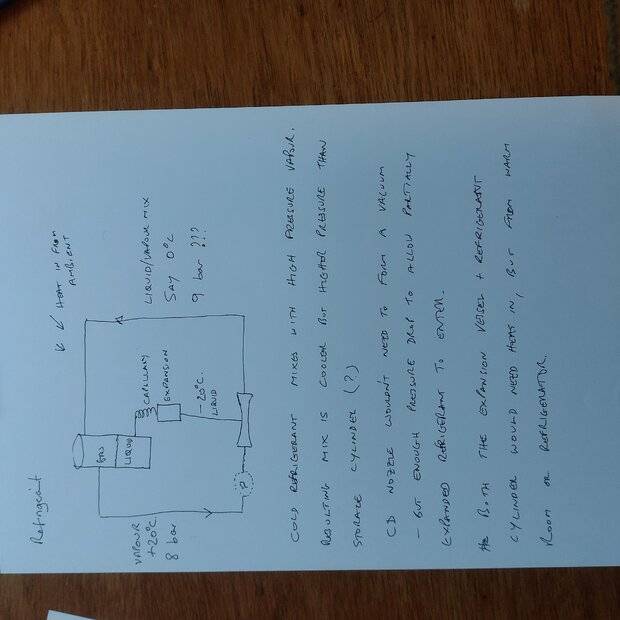 Refrigerant
HEAT IN FROM
AMBIENT
GAS
LIQUID
CAPILLARY
EXPANSION
-20°C.
LIQUID
P
VAPOUR
+20°C
8 bar
LIQUID/VAPOUR MIX
SAY 0°C
9 bar ???
COLD REFRIGERANT MIXES WITH HIGH PRESSURE VAPOUR.
RESULTING MIX IS COOLER BUT HIGHER PRESSURE THAN
STORAGE CYLINDER (?)
CD NOZZLE WOULDN'T NEED TO FORM A VACUUM
- BUT ENOUGH PRESSURE DROP TO ALLOW PARTIALLY
EXPANDED REFRIGERANT TO ENTER.
BOTH THE EXPANSION VESSEL + REFRIGERANT
CYLINDER WOULD NEED HEAT IN, BUT FROM WARM
ROOM OR REFRIGERATOR.